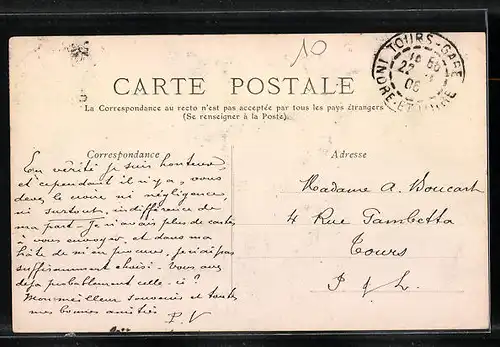 10
TOURS-GARE
22
06
INDRE-ET-LOIRE
CARTE POSTALE
La Correspondance au recto n'est pas acceptée par tous les pays étrangers
(Se renseigner à la Poste).
Correspondance
En vérité je suis honteuse
et cependant il n'y a, vous
devez le croire ni négligence,
ni surtout, indifférence de
ma part - Je n'avais plus de cartes
à vous envoyer et dans ma
hâte de m'en procurer, je n'ai pas
suffisamment choisi - Vous avez
déjà probablement celle-ci?
Mon meilleur souvenir et toutes
mes bonnes amitiés
P.V
Adresse
Madame A. Boucart
4 Rue Gambetta
Tours
I & L.